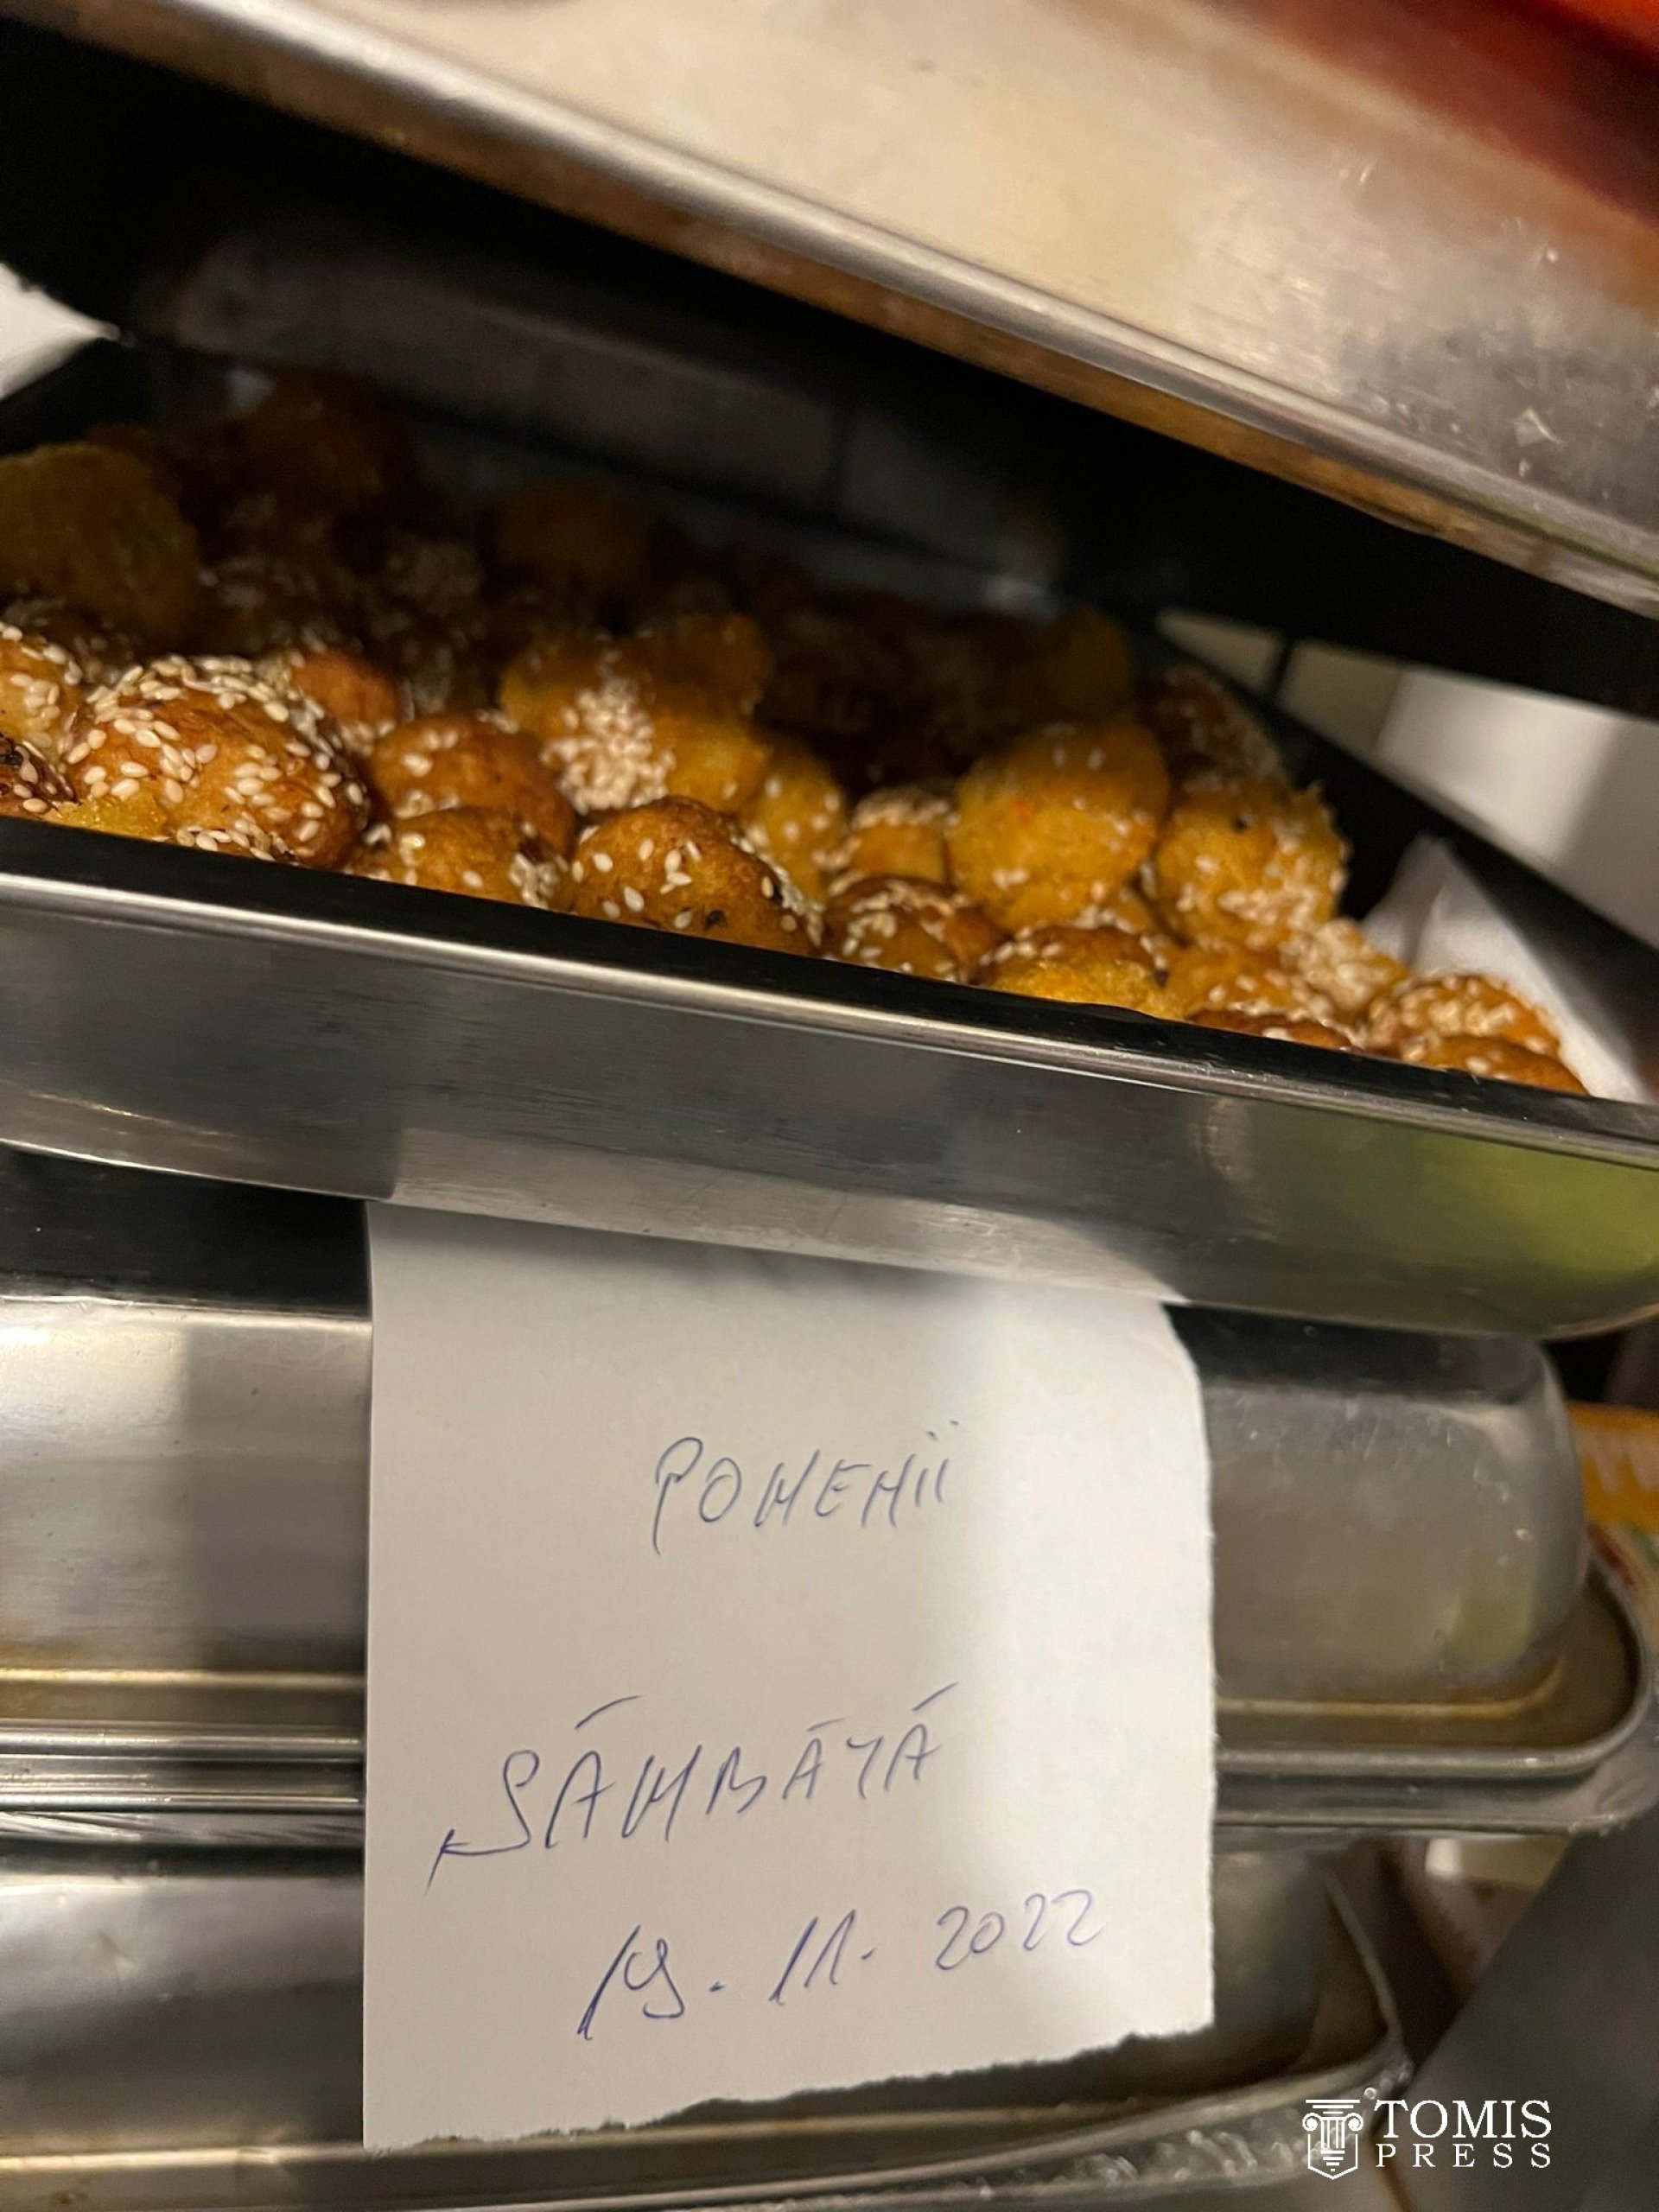 POMENII
SÂMBĂTĂ
19.11.2022
TOMIS
PRESS